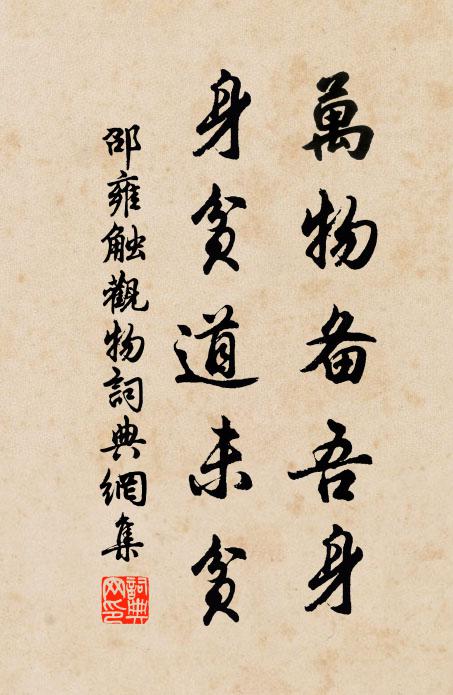 萬物备吾身
身貧道未貧
邵雍触觀物詞典網集
詞典网印